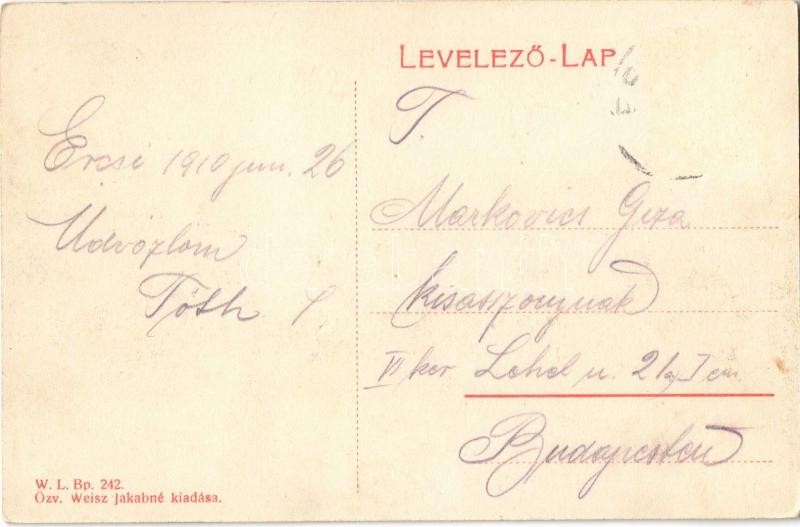 LEVELEZŐ-LAP
Ercsi 1910 jun. 26
Üdvözlöm
Tóth
T.
Markovics Geza
kisasszonynak
VI ker. Lehel u. 2/a, I em.
Budapesten
W. L. Bp. 242.
Özv. Weisz Jakabné kiadása.
darabanth